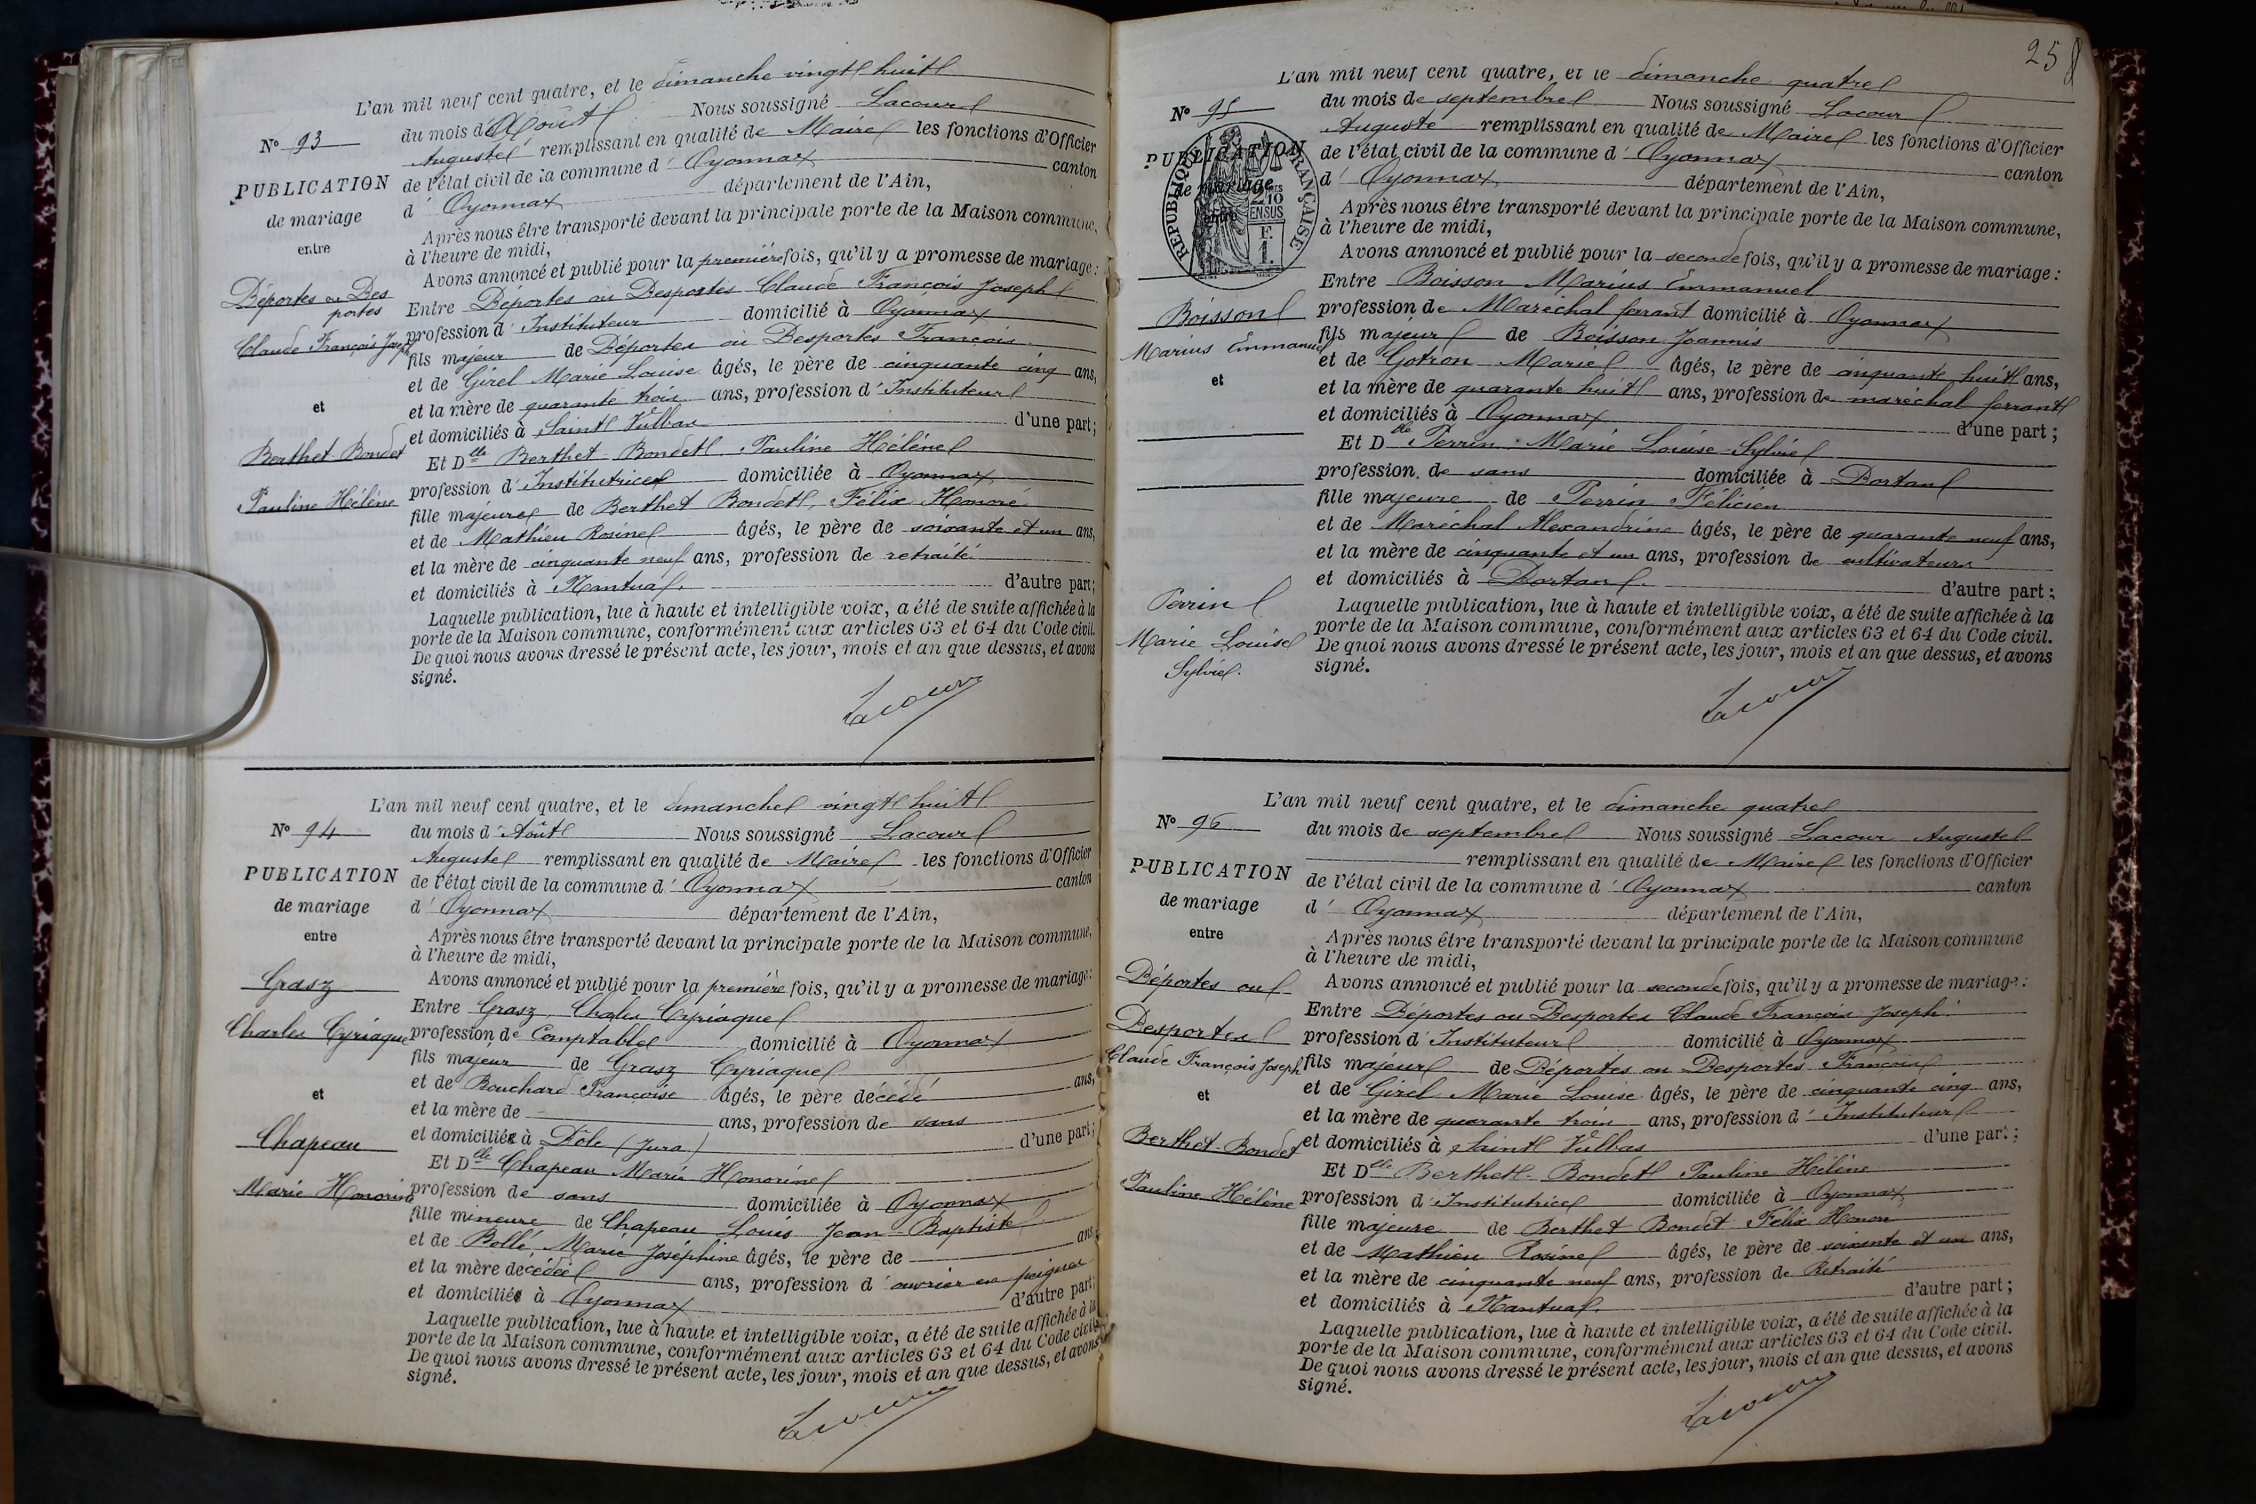 L'an mil neuf cent quatre, et le dimanche vingt huit
du mois d'Août Nous soussigné Lacour
Auguste remplissant en qualité de Maire les fonctions d'Officier
de l'état civil de la commune d' Oyonnax canton
d' Oyonnax département de l'Ain,
Après nous être transporté devant la principale porte de la Maison commune,
à l'heure de midi,
Avons annoncé et publié pour la première fois, qu'il y a promesse de mariage :
Entre Déportes ou Desportes Claude François Joseph
profession d' Instituteur domicilié à Oyonnax
fils majeur de Déportes ou Desportes François
et de Girel Marie Louise âgés, le père de cinquante cinq ans,
et la mère de quarante trois ans, profession d' Instituteur
et domiciliés à Saint Vulbas d'une part ;
Et Dlle Berthet-Bondet Pauline Hélène
profession d' Institutrice domiciliée à Oyonnax
fille majeure de Berthet Bondet, Félix Honoré
et de Mathieu Rosine âgés, le père de soixante et un ans,
et la mère de cinquante neuf ans, profession de retraité
et domiciliés à Nantua d'autre part ;
Laquelle publication, lue à haute et intelligible voix, a été de suite affichée à la
porte de la Maison commune, conformément aux articles 63 et 64 du Code civil.
De quoi nous avons dressé le présent acte, les jour, mois et an que dessus, et avons
signé.
Lacour
No 93
PUBLICATION
de mariage
entre
Déportes ou Des
portes
Claude François Joseph
et
Berthet Bondet
Pauline Hélène
L'an mil neuf cent quatre, et le dimanche vingt huit
du mois d' Août Nous soussigné Lacour
Auguste remplissant en qualité de Maire les fonctions d'Officier
de l'état civil de la commune d' Oyonnax canton
d' Oyonnax département de l'Ain,
Après nous être transporté devant la principale porte de la Maison commune,
à l'heure de midi,
Avons annoncé et publié pour la première fois, qu'il y a promesse de mariage :
Entre Grasz, Charles Cyriaque
profession de Comptable domicilié à Oyonnax
fils majeur de Grasz Cyriaque
et de Bouchard Françoise âgés, le père décédé ans,
et la mère de ans, profession de sans
et domiciliée à Dôle (Jura) d'une part ;
Et Dlle Chapeau Marie Honorine
profession de sans domiciliée à Oyonnax
fille mineure de Chapeau Louis Jean-Baptiste
et de Bollé, Marie Joséphine âgés, le père de ans,
et la mère décédée ans, profession d' ouvrier en peignes
et domicilié à Oyonnax d'autre part ;
Laquelle publication, lue à haute et intelligible voix, a été de suite affichée à la
porte de la Maison commune, conformément aux articles 63 et 64 du Code civil.
De quoi nous avons dressé le présent acte, les jour, mois et an que dessus, et avons
signé.
Lacour
No 94
PUBLICATION
de mariage
entre
Grasz
Charles Cyriaque
et
Chapeau
Marie Honorine
25
L'an mil neuf cent quatre, et le dimanche quatre
du mois de septembre Nous soussigné Lacour
Auguste remplissant en qualité de Maire les fonctions d'Officier
de l'état civil de la commune d' Oyonnax canton
d' Oyonnax département de l'Ain,
Après nous être transporté devant la principale porte de la Maison commune,
à l'heure de midi,
Avons annoncé et publié pour la seconde fois, qu'il y a promesse de mariage :
Entre Boisson Marius Emmanuel
profession de Maréchal ferrant domicilié à Oyonnax
fils majeur de Boisson Joannis
et de Gotron Marie âgés, le père de cinquante huit ans,
et la mère de quarante huit ans, profession de maréchal ferrant
et domiciliés à Oyonnax d'une part ;
Et Dlle Perrin Marie Louise Sylvie
profession de sans domiciliée à Dortan
fille majeure de Perrin Félicien
et de Maréchal Alexandrine âgés, le père de quarante neuf ans,
et la mère de cinquante et un ans, profession de cultivateurs
et domiciliés à Dortan d'autre part ;
Laquelle publication, lue à haute et intelligible voix, a été de suite affichée à la
porte de la Maison commune, conformément aux articles 63 et 64 du Code civil.
De quoi nous avons dressé le présent acte, les jour, mois et an que dessus, et avons
signé.
Lacour
No 95
PUBLICATION
de mariage
entre
RÉPUBLIQUE FRANÇAISE
2/10
EN SUS
F.
1.
Boisson
Marius Emmanuel
et
Perrin
Marie Louise
Sylvie
L'an mil neuf cent quatre, et le dimanche quatre
du mois de septembre Nous soussigné Lacour Auguste
remplissant en qualité de Maire les fonctions d'Officier
de l'état civil de la commune d' Oyonnax canton
d' Oyonnax département de l'Ain,
Après nous être transporté devant la principale porte de la Maison commune
à l'heure de midi,
Avons annoncé et publié pour la seconde fois, qu'il y a promesse de mariage :
Entre Déportes ou Desportes Claude François Joseph
profession d' Instituteur domicilié à Oyonnax
fils majeur de Déportes ou Desportes François
et de Girel Marie Louise âgés, le père de cinquante cinq ans,
et la mère de quarante trois ans, profession d' Instituteur
et domiciliés à Saint Vulbas d'une part ;
Et Dlle Berthet-Bondet Pauline Hélène
profession d' Institutrice domiciliée à Oyonnax
fille majeure de Berthet Bondet Félix Honoré
et de Mathieu Rosine âgés, le père de soixante et un ans,
et la mère de cinquante neuf ans, profession de Retraité
et domiciliés à Nantua d'autre part ;
Laquelle publication, lue à haute et intelligible voix, a été de suite affichée à la
porte de la Maison commune, conformément aux articles 63 et 64 du Code civil.
De quoi nous avons dressé le présent acte, les jour, mois et an que dessus, et avons
signé.
Lacour
No 96
PUBLICATION
de mariage
entre
Déportes ou
Desportes
Claude François Joseph
et
Berthet-Bondet
Pauline Hélène